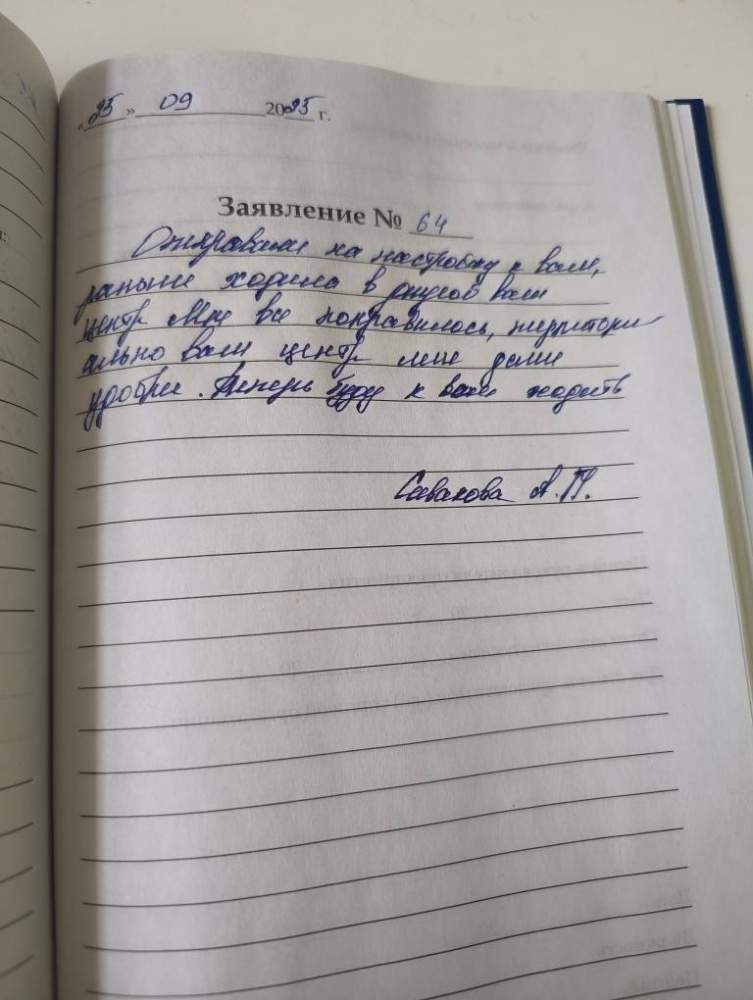 «25» 09 2025 г.
Заявление № 64
Отправили на настройку к вам,
раньше ходила в другой ваш
центр. Мне все понравилось, территори
ально ваш центр мне даже
удобнее. Теперь буду к вам ходить
Савакова А. П.